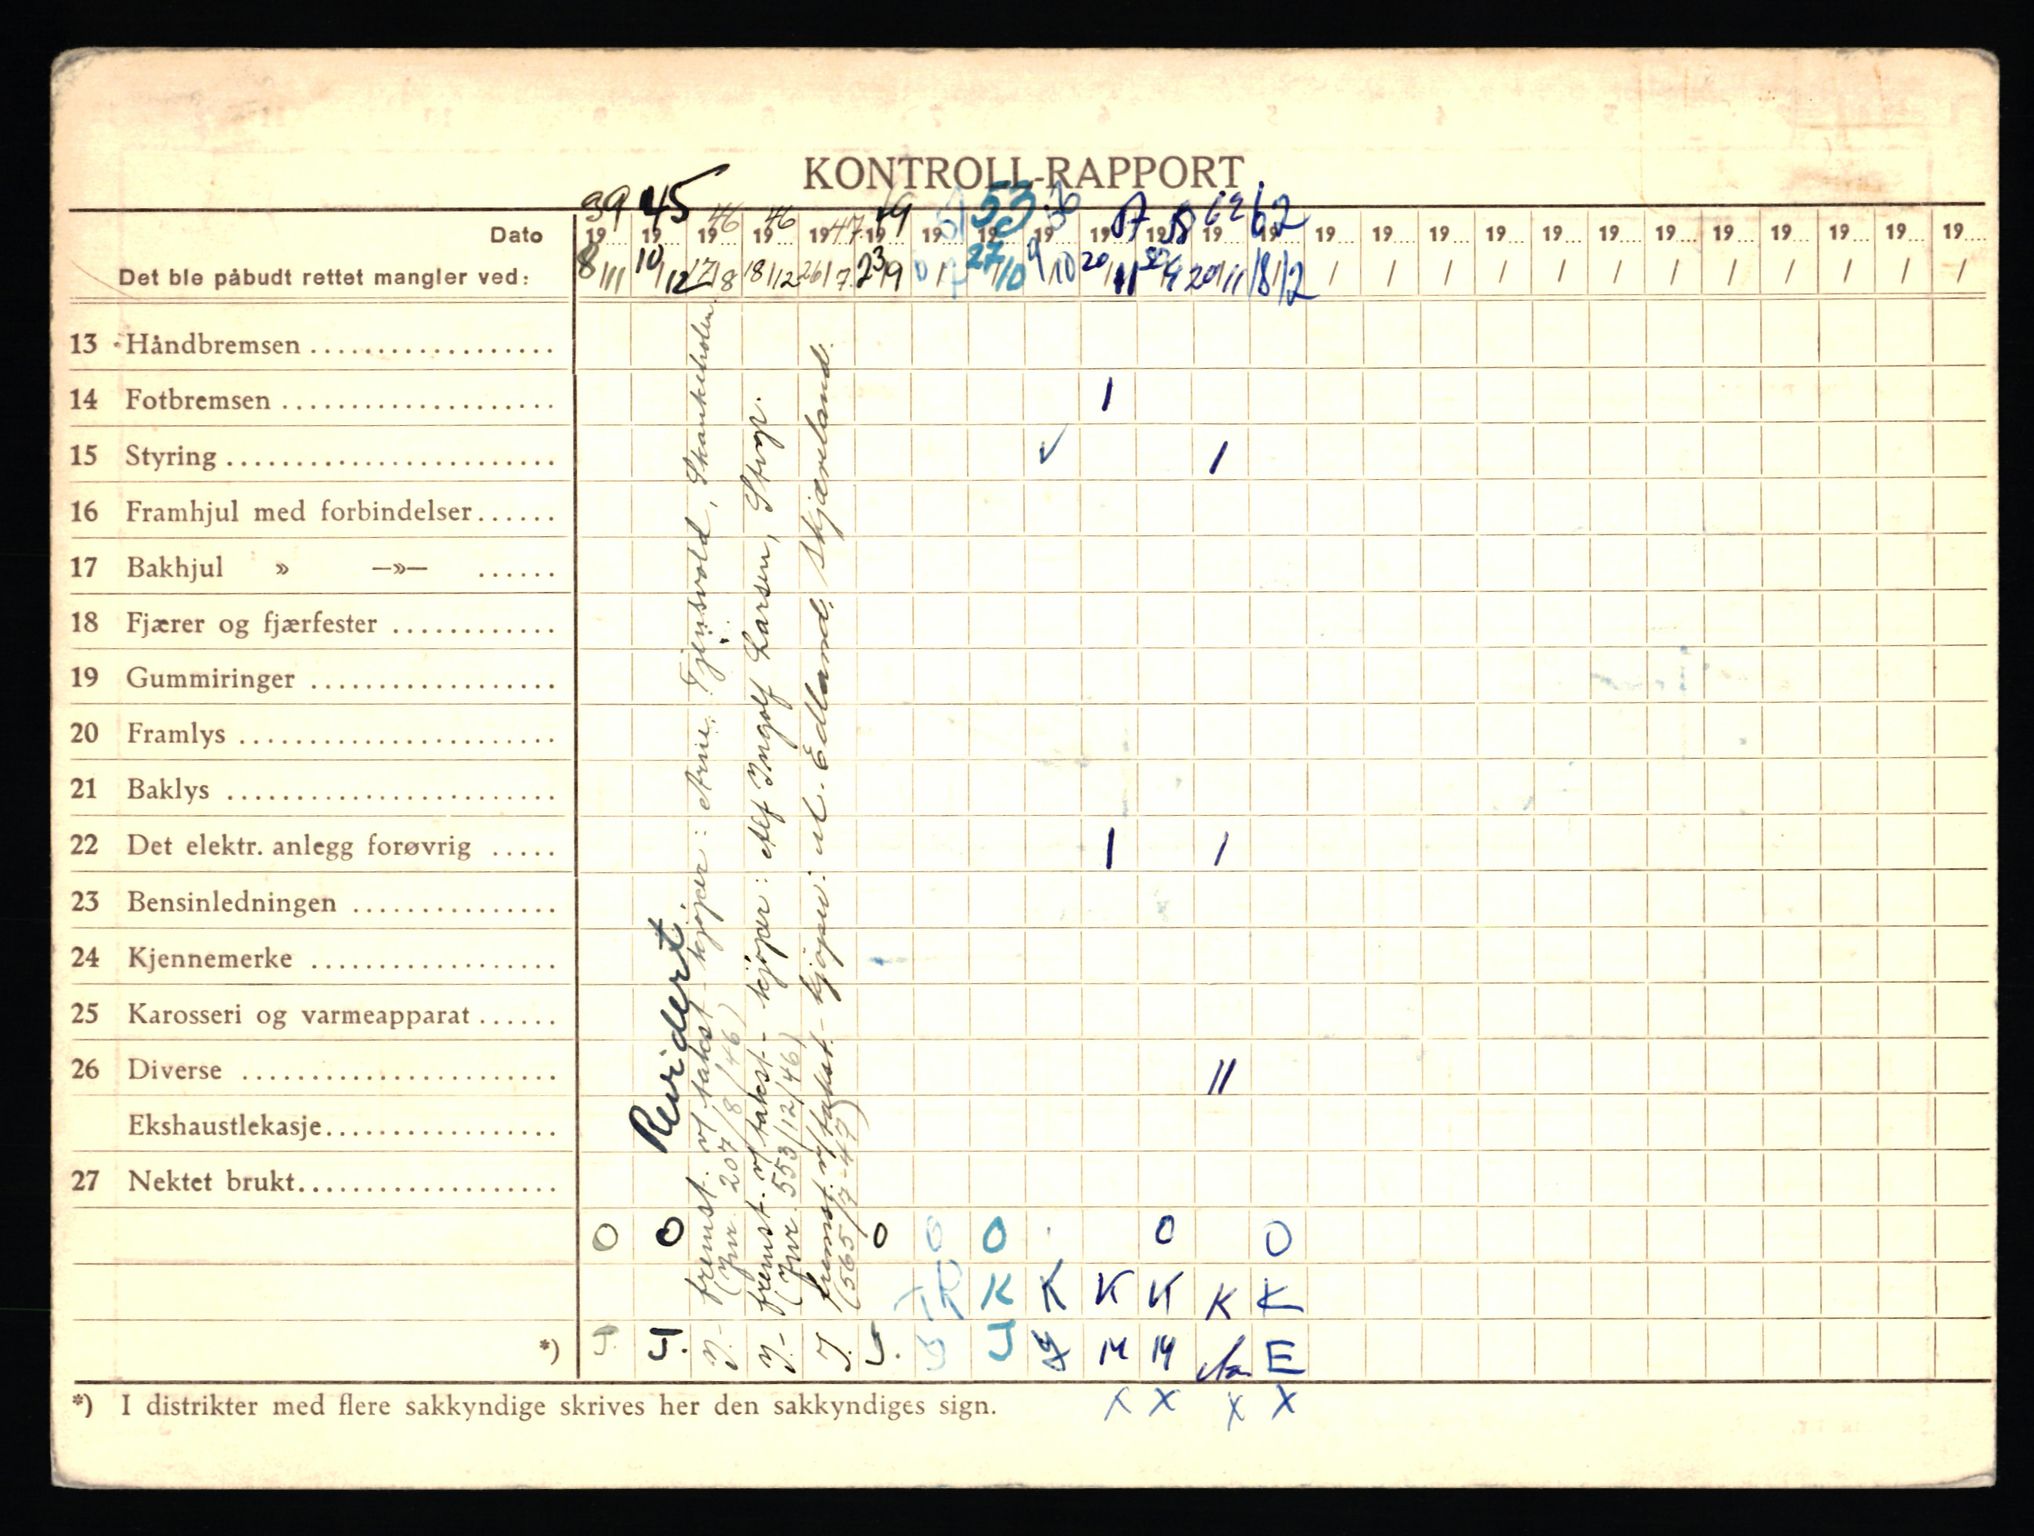 KONTROLL-RAPPORT
39 45 46 46 47 49 53 56 62 62
Dato 19.... 19.... 19.... 19.... 19.... 19.... 19.... 19.... 19.... 19.... 19.... 19.... 19.... 19.... 19.... 19.... 19.... 19.... 19.... 19.... 19.... 19.... 19.... 19.... 19....
Det ble påbudt rettet mangler ved: 8/11 10/12 17/8 18/12 26/7 23/9 27/10 9/10 20/11 20/11 18/12 / / / / / / / / / / / /
13 Håndbremsen
14 Fotbremsen 1
15 Styring ✓ 1
16 Framhjul med forbindelser
17 Bakhjul » —»—
18 Fjærer og fjærfester
19 Gummiringer
20 Framlys
21 Baklys
22 Det elektr. anlegg forøvrig 1 1
23 Bensinledningen
24 Kjennemerke
25 Karosseri og varmeapparat
26 Diverse 11
Ekshaustlekasje
27 Nektet brukt
Revidert.
fremst. v/ takst - kjøper: Arne Tjensvold,
(Jnr. 207/8/46)
fremst. v/ takst - kjøper: Alf Ingolf Larsen,
(Jnr. 553/12/46)
fremst. v/ takst - kjøper: Edland, Skjæreland.
(565/7-47)
O O O O O O O
K K K K K K
*) J. J. J. J. J. J. J E
x x x x
*) I distrikter med flere sakkyndige skrives her den sakkyndiges sign.